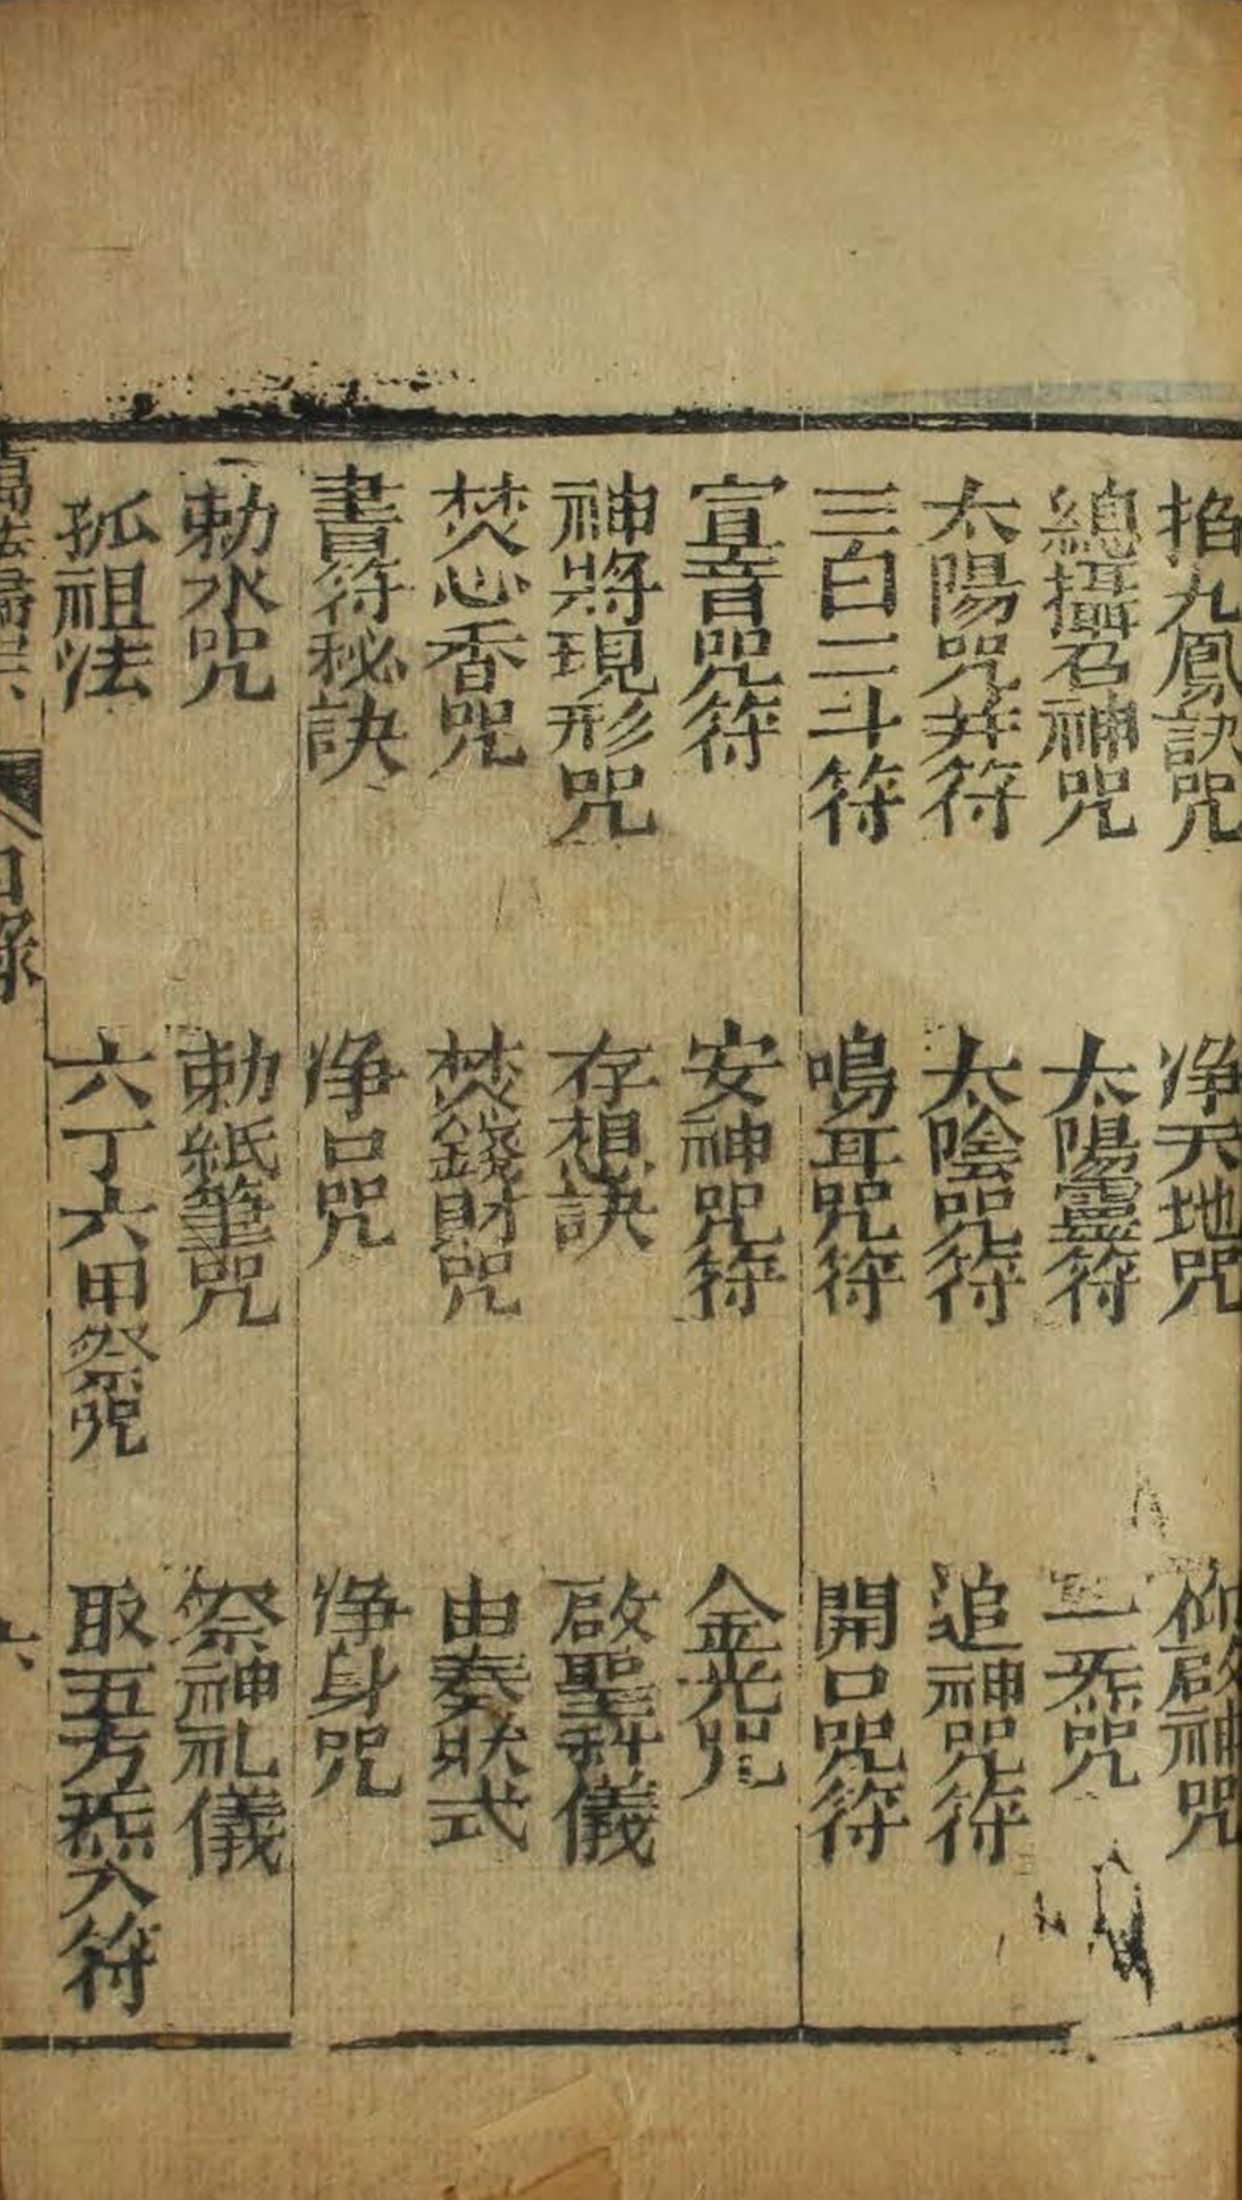 掐九鳳訣咒 净天地咒 仰啟神咒
總攝召神咒 太陽靈符 一炁咒
太陽咒并符 太陰咒符 追神咒符
三白二斗符 鳴耳咒符 開口咒符
宣音咒符 安神咒符 金光咒
神將現形咒 存想訣 啟聖科儀
焚心香咒 焚錢財咒 由奏狀式
書符秘訣 净口咒 净身咒
勅水咒 勅紙筆咒 祭神礼儀
孤祖法 六丁六甲祭咒 取五方炁入符
萬法歸宗 目錄 六